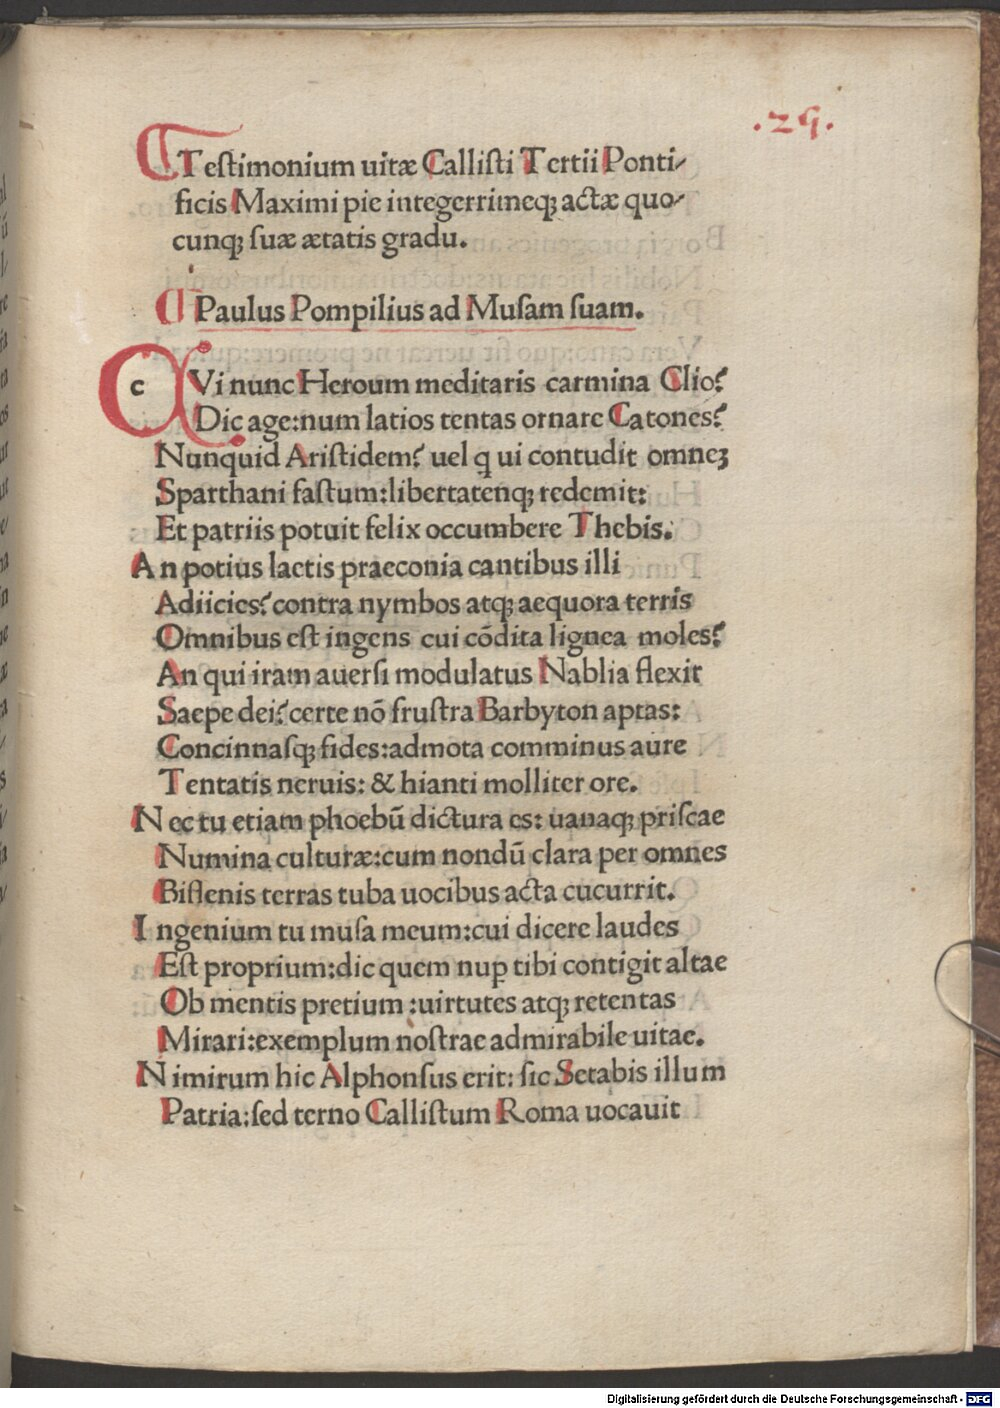 .25.
Teſtimonium uitæ Calliſti Tertii Ponti-
ficis Maximi pie integerrimeqꝫ actæ quo-
cunqꝫ ſuæ ætatis gradu.
Paulus Pompilius ad Muſam ſuam.
c Vi nunc Heroum meditaris carmina Clio?
Dic age:num latios tentas ornare Catones?
Nunquid Ariſtidem? uel q ui contudit omneꝫ
Sparthani faſtum:libertatenqꝫ redemit:
Et patriis potuit felix occumbere Thebis.
An potius laetis praeconia cantibus illi
Adiicies? contra nymbos atqꝫ aequora terris
Omnibus eſt ingens cui cõdita lignea moles?
An qui iram auerſi modulatus Nablia flexit
Saepe dei? certe nõ fruſtra Barbyton aptas:
Concinnaſqꝫ fides:admota comminus aure
Tentatis neruis: & hianti molliter ore.
N ec tu etiam phoebũ dictura es: uanaqꝫ priſcae
Numina culturæ:cum nondũ clara per omnes
Biſſenis terras tuba uocibus acta cucurrit.
I ngenium tu muſa meum:cui dicere laudes
Eſt proprium:dic quem nuꝑ tibi contigit altae
Ob mentis pretium :uirtutes atqꝫ retentas
Mirari:exemplum noſtrae admirabile uitae.
N imirum hic Alphonſus erit: ſic Setabis illum
Patria:ſed terno Calliſtum Roma uocauit
Digitalisierung gefördert durch die Deutsche Forschungsgemeinschaft - DFG